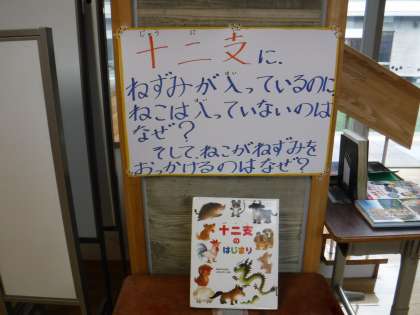 じゅうにし
十二支に、
ねずみが入っているのに
ねこは入っていないのは
なぜ?
そして、ねこがねずみを
おっかけるのはなぜ?
十二支
の
はじまり